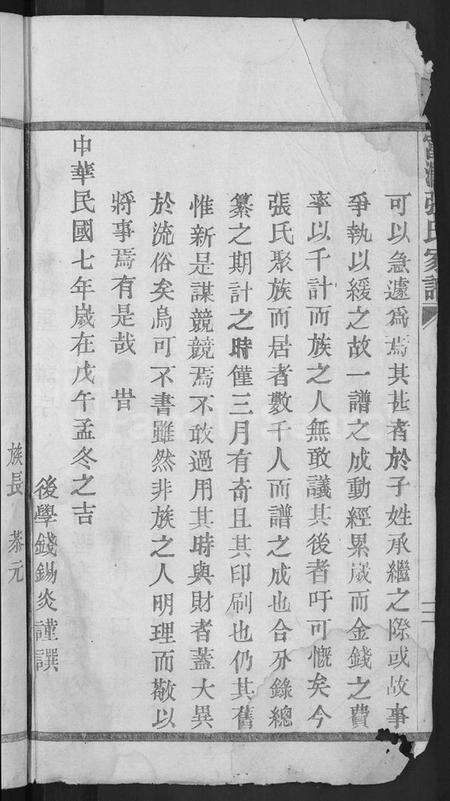 張氏家譜
三
可以急遽爲焉其甚者於子姓承繼之際或故事
爭執以緩之故一譜之成動經累歲而金錢之費
率以千計而族之人無敢議其後者吁可慨矣今
張氏聚族而居者數千人而譜之成也合分錄總
纂之期計之時僅三月有奇且其印刷也仍其舊
惟新是謀競競焉不敢過用其時與財者蓋大異
於流俗矣烏可不書雖然非族之人明理而敬以
將事焉有是哉 旹
中華民國七年歲在戊午孟冬之吉
後學錢錫炎謹譔
族長 恭元